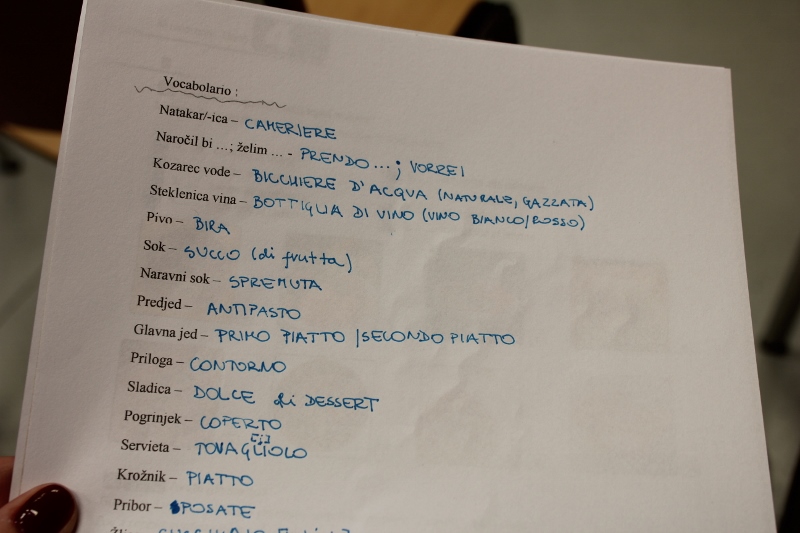 Vocabolario :
Natakar/-ica – CAMERIERE
Naročil bi ...; želim ... - PRENDO ... ; VORREI
Kozarec vode – BICCHIERE D'ACQUA (NATURALE, GAZZATA)
Steklenica vina – BOTTIGLIA DI VINO (VINO BIANCO/ROSSO)
Pivo – BIRA
Sok – SUCCO (di frutta)
Naravni sok – SPREMUTA
Predjed – ANTIPASTO
Glavna jed – PRIMO PIATTO /SECONDO PIATTO
Priloga – CONTORNO
Sladica – DOLCE ali DESSERT
Pogrinjek – COPERTO
Servieta – TOVAGLIOLO
Krožnik – PIATTO
Pribor – POSATE